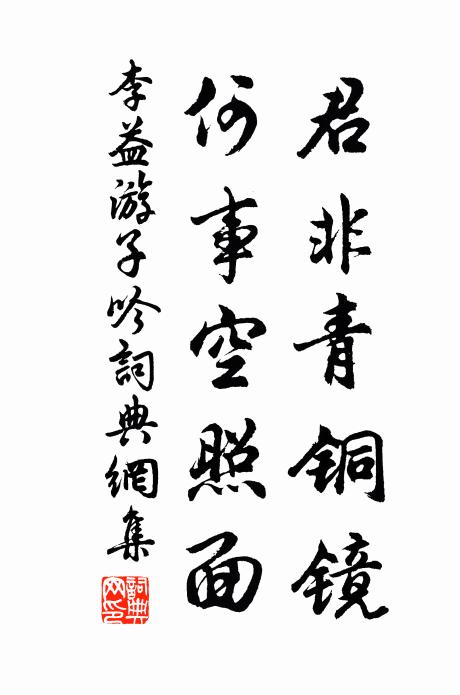 君非青铜镜
何事空照面
李益游子吟詞典網集
詞典网印